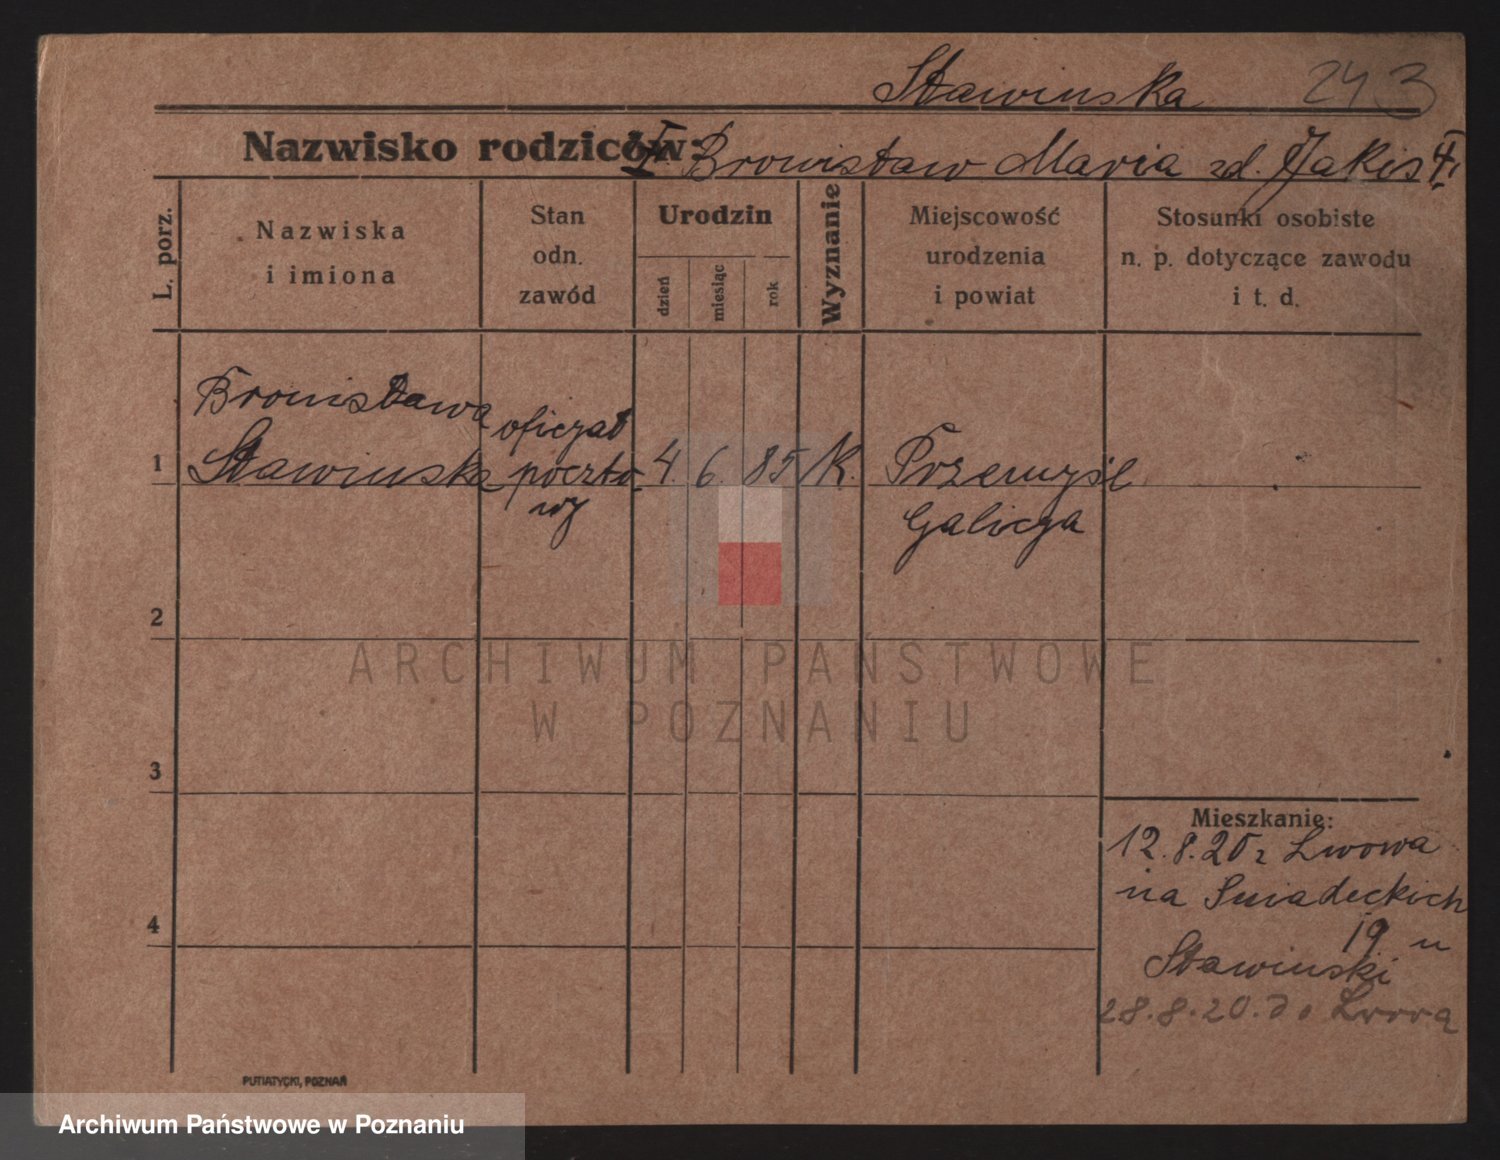 Stawinska 243
Nazwisko rodziców: Bronisław Maria zd. Jakis
L. porz.
Nazwiska
i imiona
Stan
odn.
zawód
Urodzin
dzień
miesiąc
rok
Wyznanie
Miejscowość
urodzenia
i powiat
Stosunki osobiste
n. p. dotyczące zawodu
i t. d.
1
Bronisława
Stawinska
oficjał
poczto
wy
4. 6. 85 K.
Przemyśl
Galicja
2
3
4
Mieszkanie:
12.8.20 z Lwowa
na Sniadeckich
19 u
Stawinski
28.8.20. do Lwowa
PUTIATYCKI, POZNAŃ
ARCHIWUM PAŃSTWOWE
W POZNANIU
Archiwum Państwowe w Poznaniu